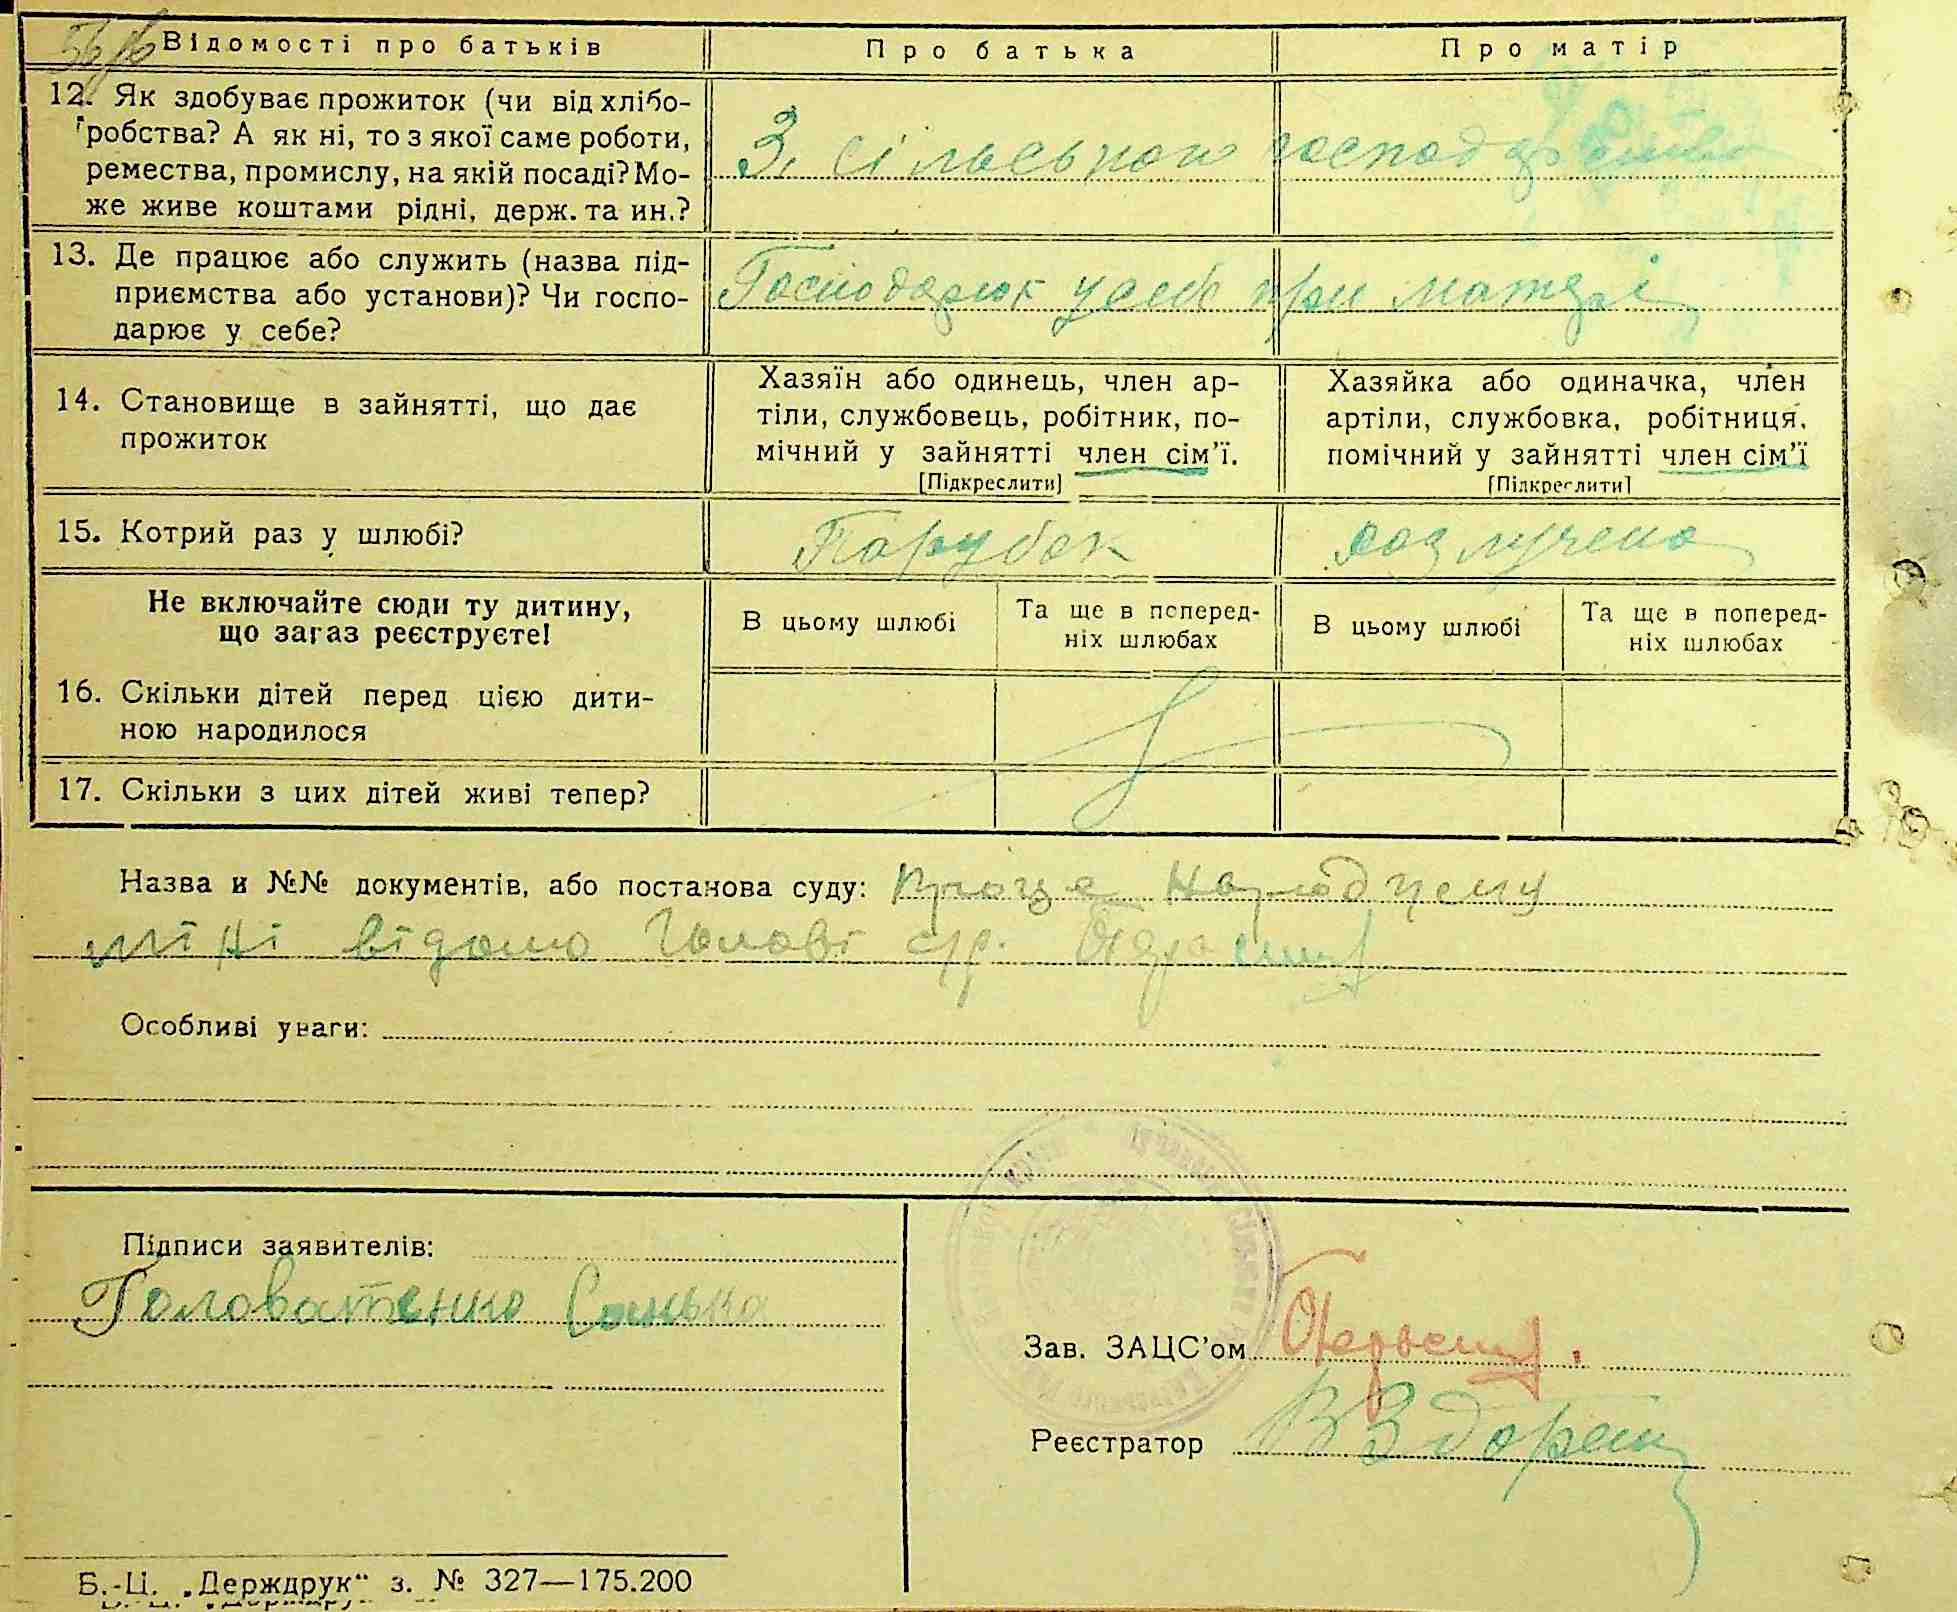 56/16
Відомості про батьків Про батька Про матір
12. Як здобуває прожиток (чи від хлібо-
робства? А як ні, то з якої саме роботи,
ремества, промислу, на якій посаді? Мо-
же живе коштами рідні, держ. та ин.?
З сільського господарства
13. Де працює або служить (назва під-
приємства або установи)? Чи госпо-
дарює у себе?
Господарює у себе при матері
14. Становище в зайнятті, що дає
прожиток
Хазяїн або одинець, член ар-
тіли, службовець, робітник, по-
мічний у зайнятті член сім’ї.
[Підкреслити]
Хазяйка або одиначка, член
артіли, службовка, робітниця,
помічний у зайнятті член сім’ї
[Підкреслити]
15. Котрий раз у шлюбі? Парубок розлучена
Не включайте сюди ту дитину,
що зараз реєструєте!
В цьому шлюбі
Та ще в поперед-
ніх шлюбах
В цьому шлюбі
Та ще в поперед-
ніх шлюбах
16. Скільки дітей перед цією дити-
ною народилося
17. Скільки з цих дітей живі тепер?
Назва и №№ документів, або постанова суду:
відомо Голові с/р.
Особливі уваги:
Підписи заявителів:
Головатенко Санька
Зав. ЗАЦС’ом
Реєстратор
Б.-Ц. „Держдрук“ з. № 327—175.200